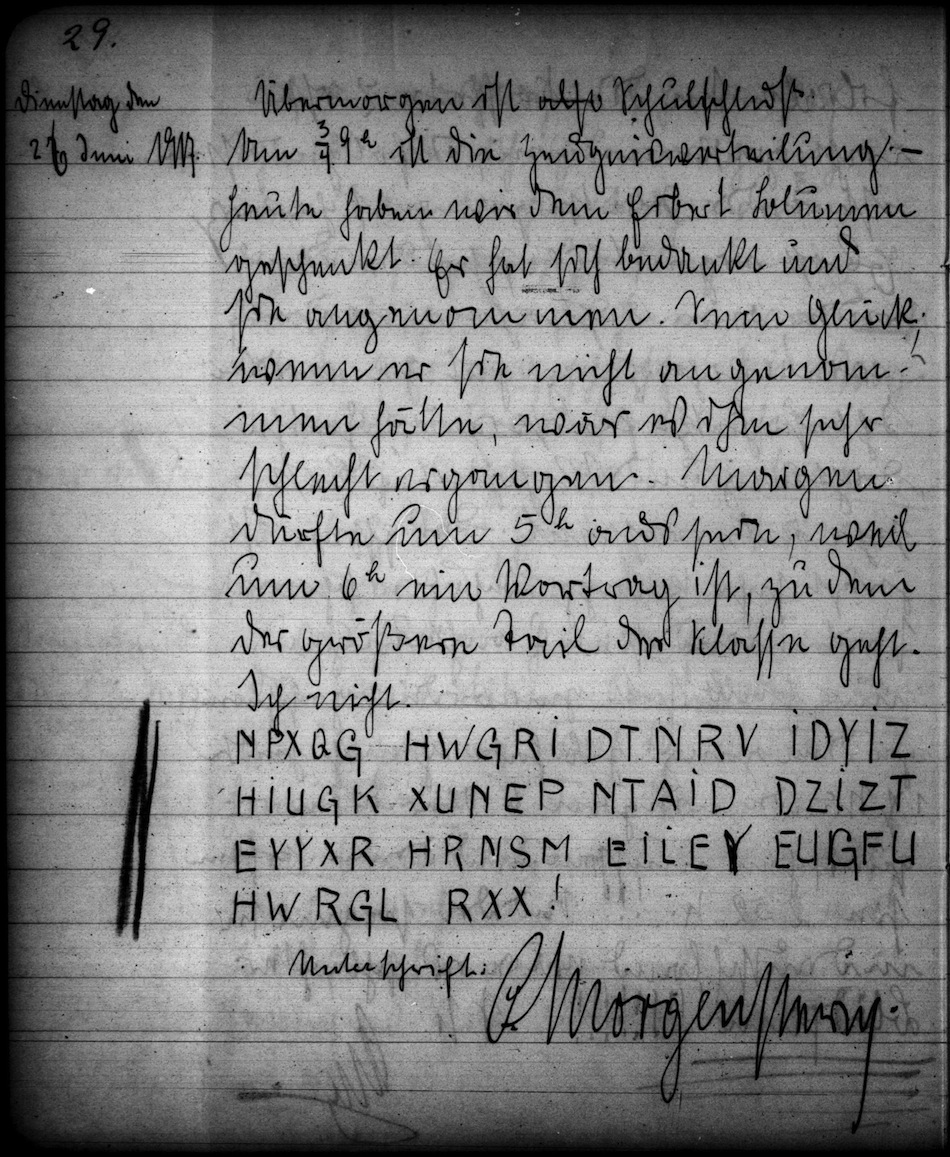 29.
Dienstag den
26 Juni 1917.
Übermorgen ist also Schulschluß.
Um ¾ 9 h ist die Zeugnisverteilung. –
Heute haben wir dem Erbert Blumen
geschenkt. Er hat sich bedankt und
sie angenommen. Sein Glück;
wenn er sie nicht angenom-
men hätte, wär es ihm sehr
schlecht ergangen. Morgen
dürfte um 5 h aus sein, weil
um 6 h ein Vortrag ist, zu dem
der größere Teil der Klasse geht.
Ich nicht.
NPXQG HWGRI DTNRV IDYIZ
HIUGK XUNEP NTAID DZIZT
EYYXR HRNSM EILEY EUGFU
HWRGL RXX!
Unterschrift: O Morgenstern.